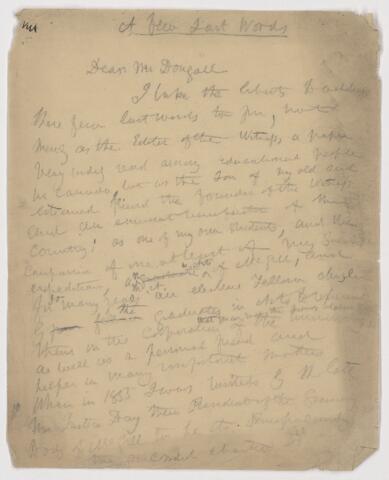 A Few Last Words
Dear Mr Dougall
I take the liberty to address
these few last words to you, not
merely as the Editor of the Witness, a paper
very widely read among educational people
in Canada, but as the Son of my old and
esteemed friend the founder of the Witness
and an eminent benefactor of this
Country: as one of my own students, and the
Companion of one at least of my
expeditions, as graduate of McGill, and
for many years an elective Fellow
of the graduates in Arts to represent
them in the Corporation of the University
as well as a personal friend and
helper in many important matters
When in 1855 I was invited by the late
Mr Justice Day then President of the Governing
Body of McGill to be its Principal under
its amended charter